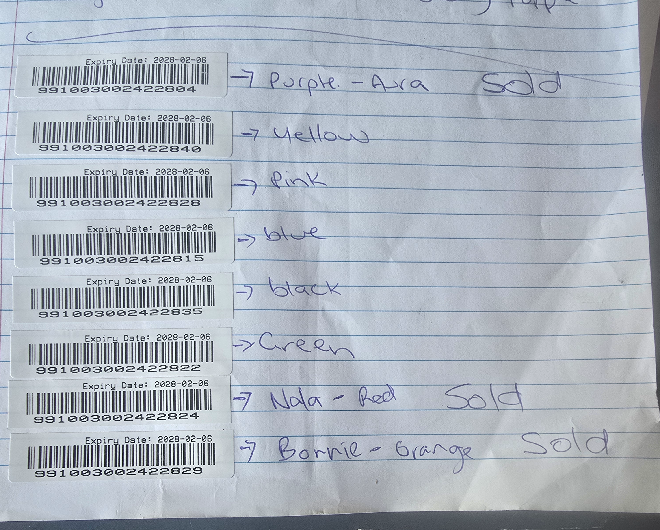 Expiry Date: 2028-02-06
991003002422804 → Purple - Aura Sold
Expiry Date: 2028-02-06
991003002422840 → Yellow
Expiry Date: 2028-02-06
991003002422828 → Pink
Expiry Date: 2028-02-06
991003002422815 → blue
Expiry Date: 2028-02-06
991003002422835 → black
Expiry Date: 2028-02-06
991003002422822 → Green
Expiry Date: 2028-02-06
991003002422824 → Nala - Red Sold
Expiry Date: 2028-02-06
991003002422829 → Bonnie - Orange Sold